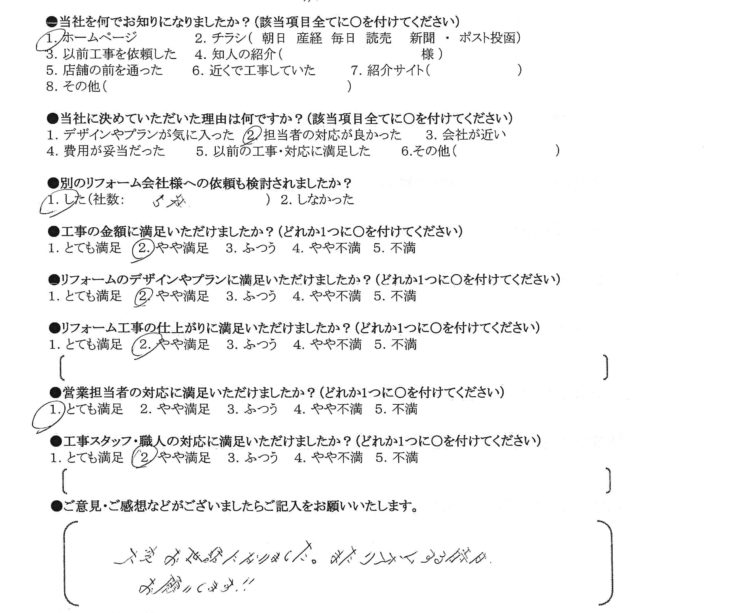 ●当社を何でお知りになりましたか？(該当項目全てに〇を付けてください)
1. ホームページ 2. チラシ( 朝日 産経 毎日 読売 新聞 ・ ポスト投函)
3. 以前工事を依頼した 4. 知人の紹介( 様 )
5. 店舗の前を通った 6. 近くで工事していた 7. 紹介サイト( )
8. その他( )
●当社に決めていただいた理由は何ですか？(該当項目全てに〇を付けてください)
1. デザインやプランが気に入った 2. 担当者の対応が良かった 3. 会社が近い
4. 費用が妥当だった 5. 以前の工事・対応に満足した 6.その他( )
●別のリフォーム会社様への依頼も検討されましたか？
1. した(社数: 5社 ) 2. しなかった
●工事の金額に満足いただけましたか？(どれか1つに〇を付けてください)
1. とても満足 2. やや満足 3. ふつう 4. やや不満 5. 不満
●リフォームのデザインやプランに満足いただけましたか？(どれか1つに〇を付けてください)
1. とても満足 2. やや満足 3. ふつう 4. やや不満 5. 不満
●リフォーム工事の仕上がりに満足いただけましたか？(どれか1つに〇を付けてください)
1. とても満足 2. やや満足 3. ふつう 4. やや不満 5. 不満
●営業担当者の対応に満足いただけましたか？(どれか1つに〇を付けてください)
1. とても満足 2. やや満足 3. ふつう 4. やや不満 5. 不満
●工事スタッフ・職人の対応に満足いただけましたか？(どれか1つに〇を付けてください)
1. とても満足 2 やや満足 3. ふつう 4. やや不満 5. 不満
●ご意見・ご感想などがございましたらご記入をお願いいたします。
大変お世話になりました。またリフォームする時は
お願いします!!